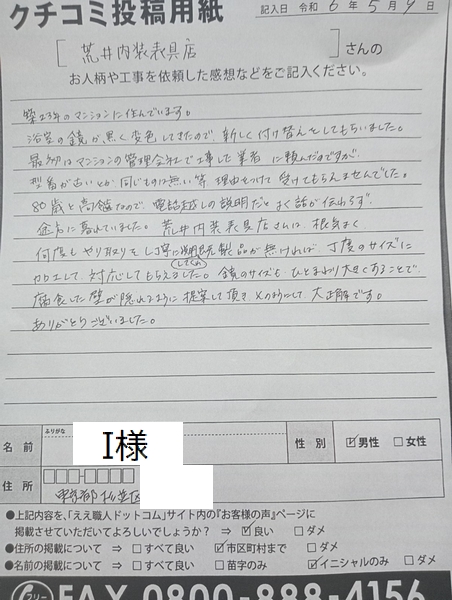 クチコミ投稿用紙
記入日 令和 6 年 5 月 9 日
[荒井内装表具店]さんの
お人柄や工事を依頼した感想などをご記入ください。
築23年のマンションに住んでいます。
浴室の鏡が黒く変色してきたので新しく付け替えをしてもらいました。
最初はマンションの管理会社で工事した業者に頼んだのですが
型番が古いとか同じものは無い等理由をつけて受けてもらえませんでした。
80歳と高齢なので、電話越しの説明だとよく話が伝わらず
途方に暮れていました。荒井内装表具店さんは、根気よく
何度もやり取りをし丁寧に説明してくれ既製品が無ければ、丁度のサイズに
加工して対応してもらえました。鏡のサイズもひとまわり大きくすることで、
腐食した壁が隠れるように提案して頂きそのようにして大正解です。
ありがとうございました。
ふりがな
名前 I様 性別 ☑男性 □女性
住所 東京都杉並区
●上記内容を、「ええ職人ドットコム」サイト内の『お客様の声』ページに
掲載させていただいてよろしいでしょうか? ⇒ ☑良い □ダメ
●住所の掲載について ⇒ □すべて良い ☑市区町村まで □ダメ
●名前の掲載について ⇒ □すべて良い □苗字のみ ☑イニシャルのみ □ダメ
フリー FAX 0800-888-4156